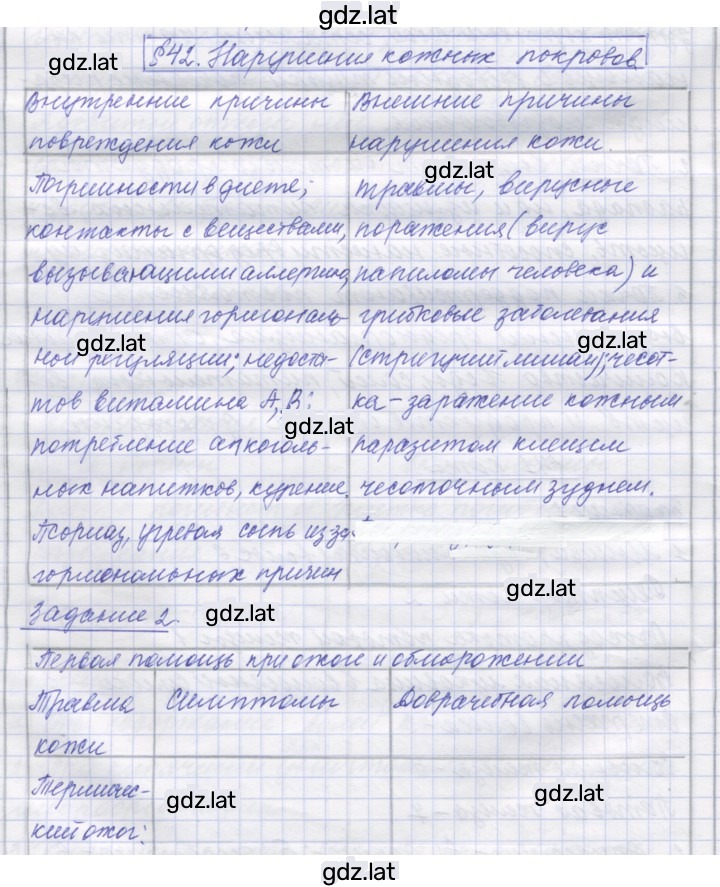 gdz.lat
§42. Нарушения кожных покровов
gdz.lat
Внутренние причины
повреждения кожи
Внешние причины
нарушения кожи.
gdz.lat
Погрешности в диете;
контакты с веществами,
вызывающими аллергию,
нарушения гормональ-
gdz.lat
ной регуляции; недоста-
тов витамина А, В;
потребление алкоголь-
ных напитков, курение.
Псориаз, угревая сыпь из-за
гормональных причин
травмы, вирусные
поражения (вирус
папиломы человека) и
грибковые заболевания
gdz.lat
(стригущий лишай); чесот-
ка - заражение кожным
gdz.lat
паразитом клещем
чесоточным зуднем.
gdz.lat
Задание 2.
gdz.lat
Первая помощь при ожоге и обморожении
Травма
кожи
Симптомы
Доврачебная помощь
Термичес-
кий ожог:
gdz.lat
gdz.lat
gdz.lat